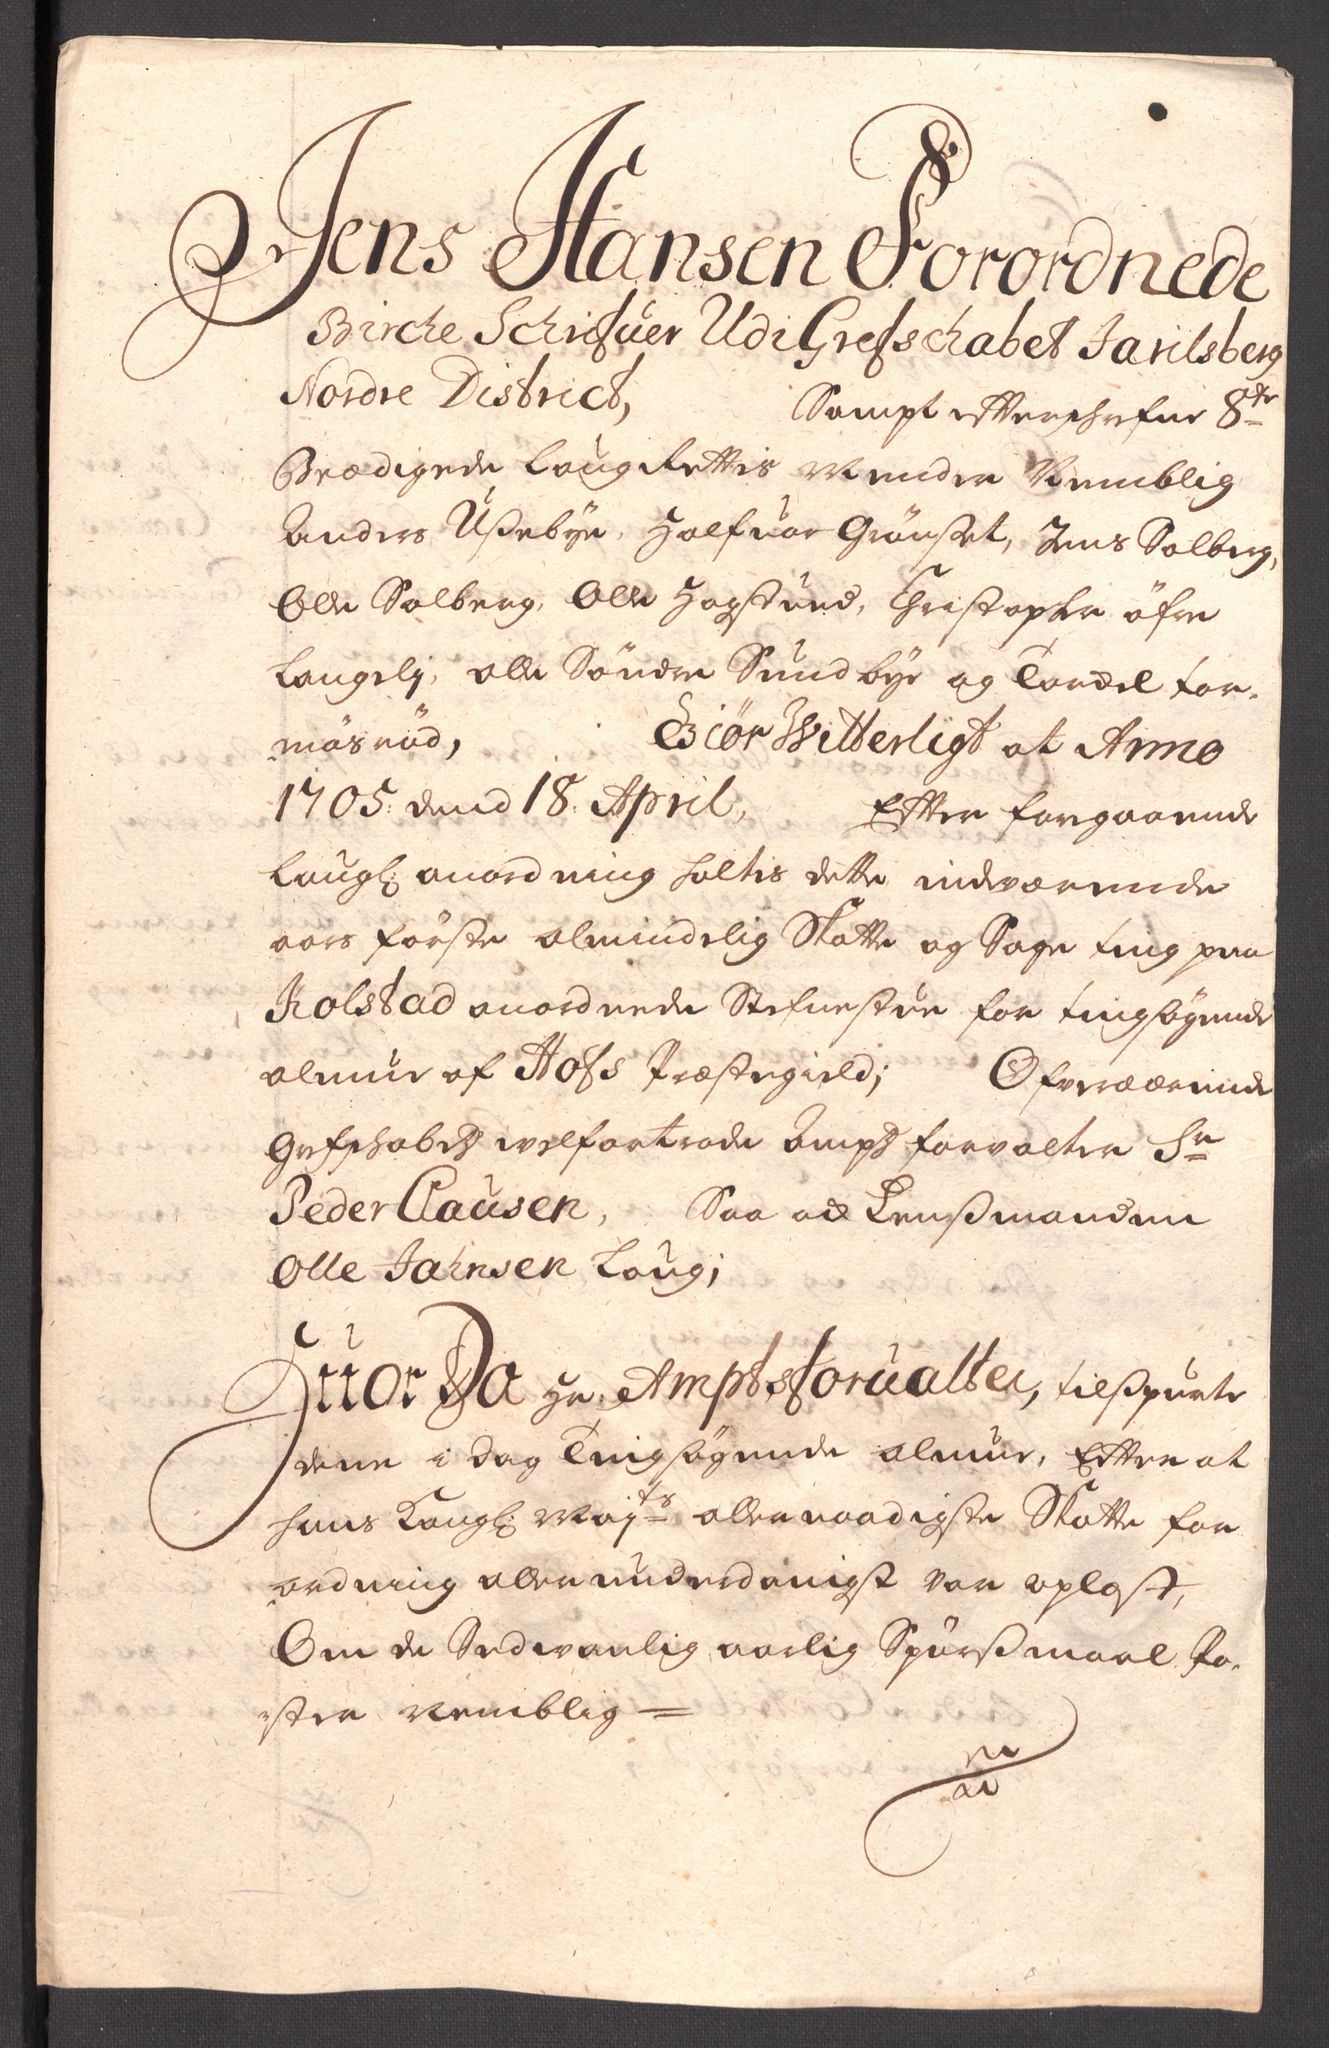 Jens Hansen Forordnede
Birche Schrifuer Udi Grefschabet Jarilsberg
Nordre District, Sampt efterschrefne 8te
Beædigede Laugrettis Mender Nemblig
Anders Ußebye, Halfuor Grönset, Jens Solberg,
Olle Solberg, Olle Hogstued, Christopher öfre
Langelj, olle Söndre Sundbye og Tordel Tor-
mösröd, Giör Witterligt at Anno
1705 dend 18 April, Efter forgaaende
Laugl: anordning holtis dette indværende
aars förste almindelig Skatte og Sage ting paa
Kolstad anordnede Stefnestue for tingsögende
almue af Hofs Præstegield; Ofverværende
Grefschabetz welforterode Ampt forvalter Sr
Peder Clausen, Saa od Lensßmanden
Olle Jahnsen Laug;
Huor Da Hr. Amptsforualter, tilspurte
dene i dag Tingsögende almue, Efter at
hans Kongl: Mayts allernaadigste Skatte for
ordning allerunderdanigst var oplest,
Om de Sedvanlig aarlig Spörßmaal Po-
ster Nemblig =